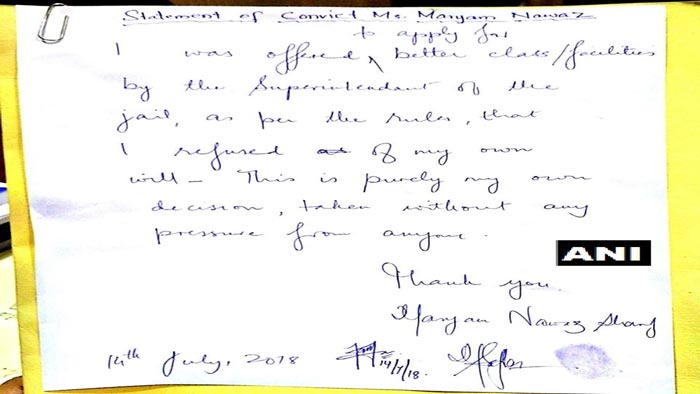 Statement of Convict Ms. Maryam Nawaz
to apply for
I was offered ^ better class/facilities
by the Superintendant of the
jail, as per the rules, that
I refused of my own
will – This is purely my own
decision, taken without any
pressure from anyone.
ANI
Thank you.
Maryam Nawaz Sharif
14th July, 2018
14/7/18.